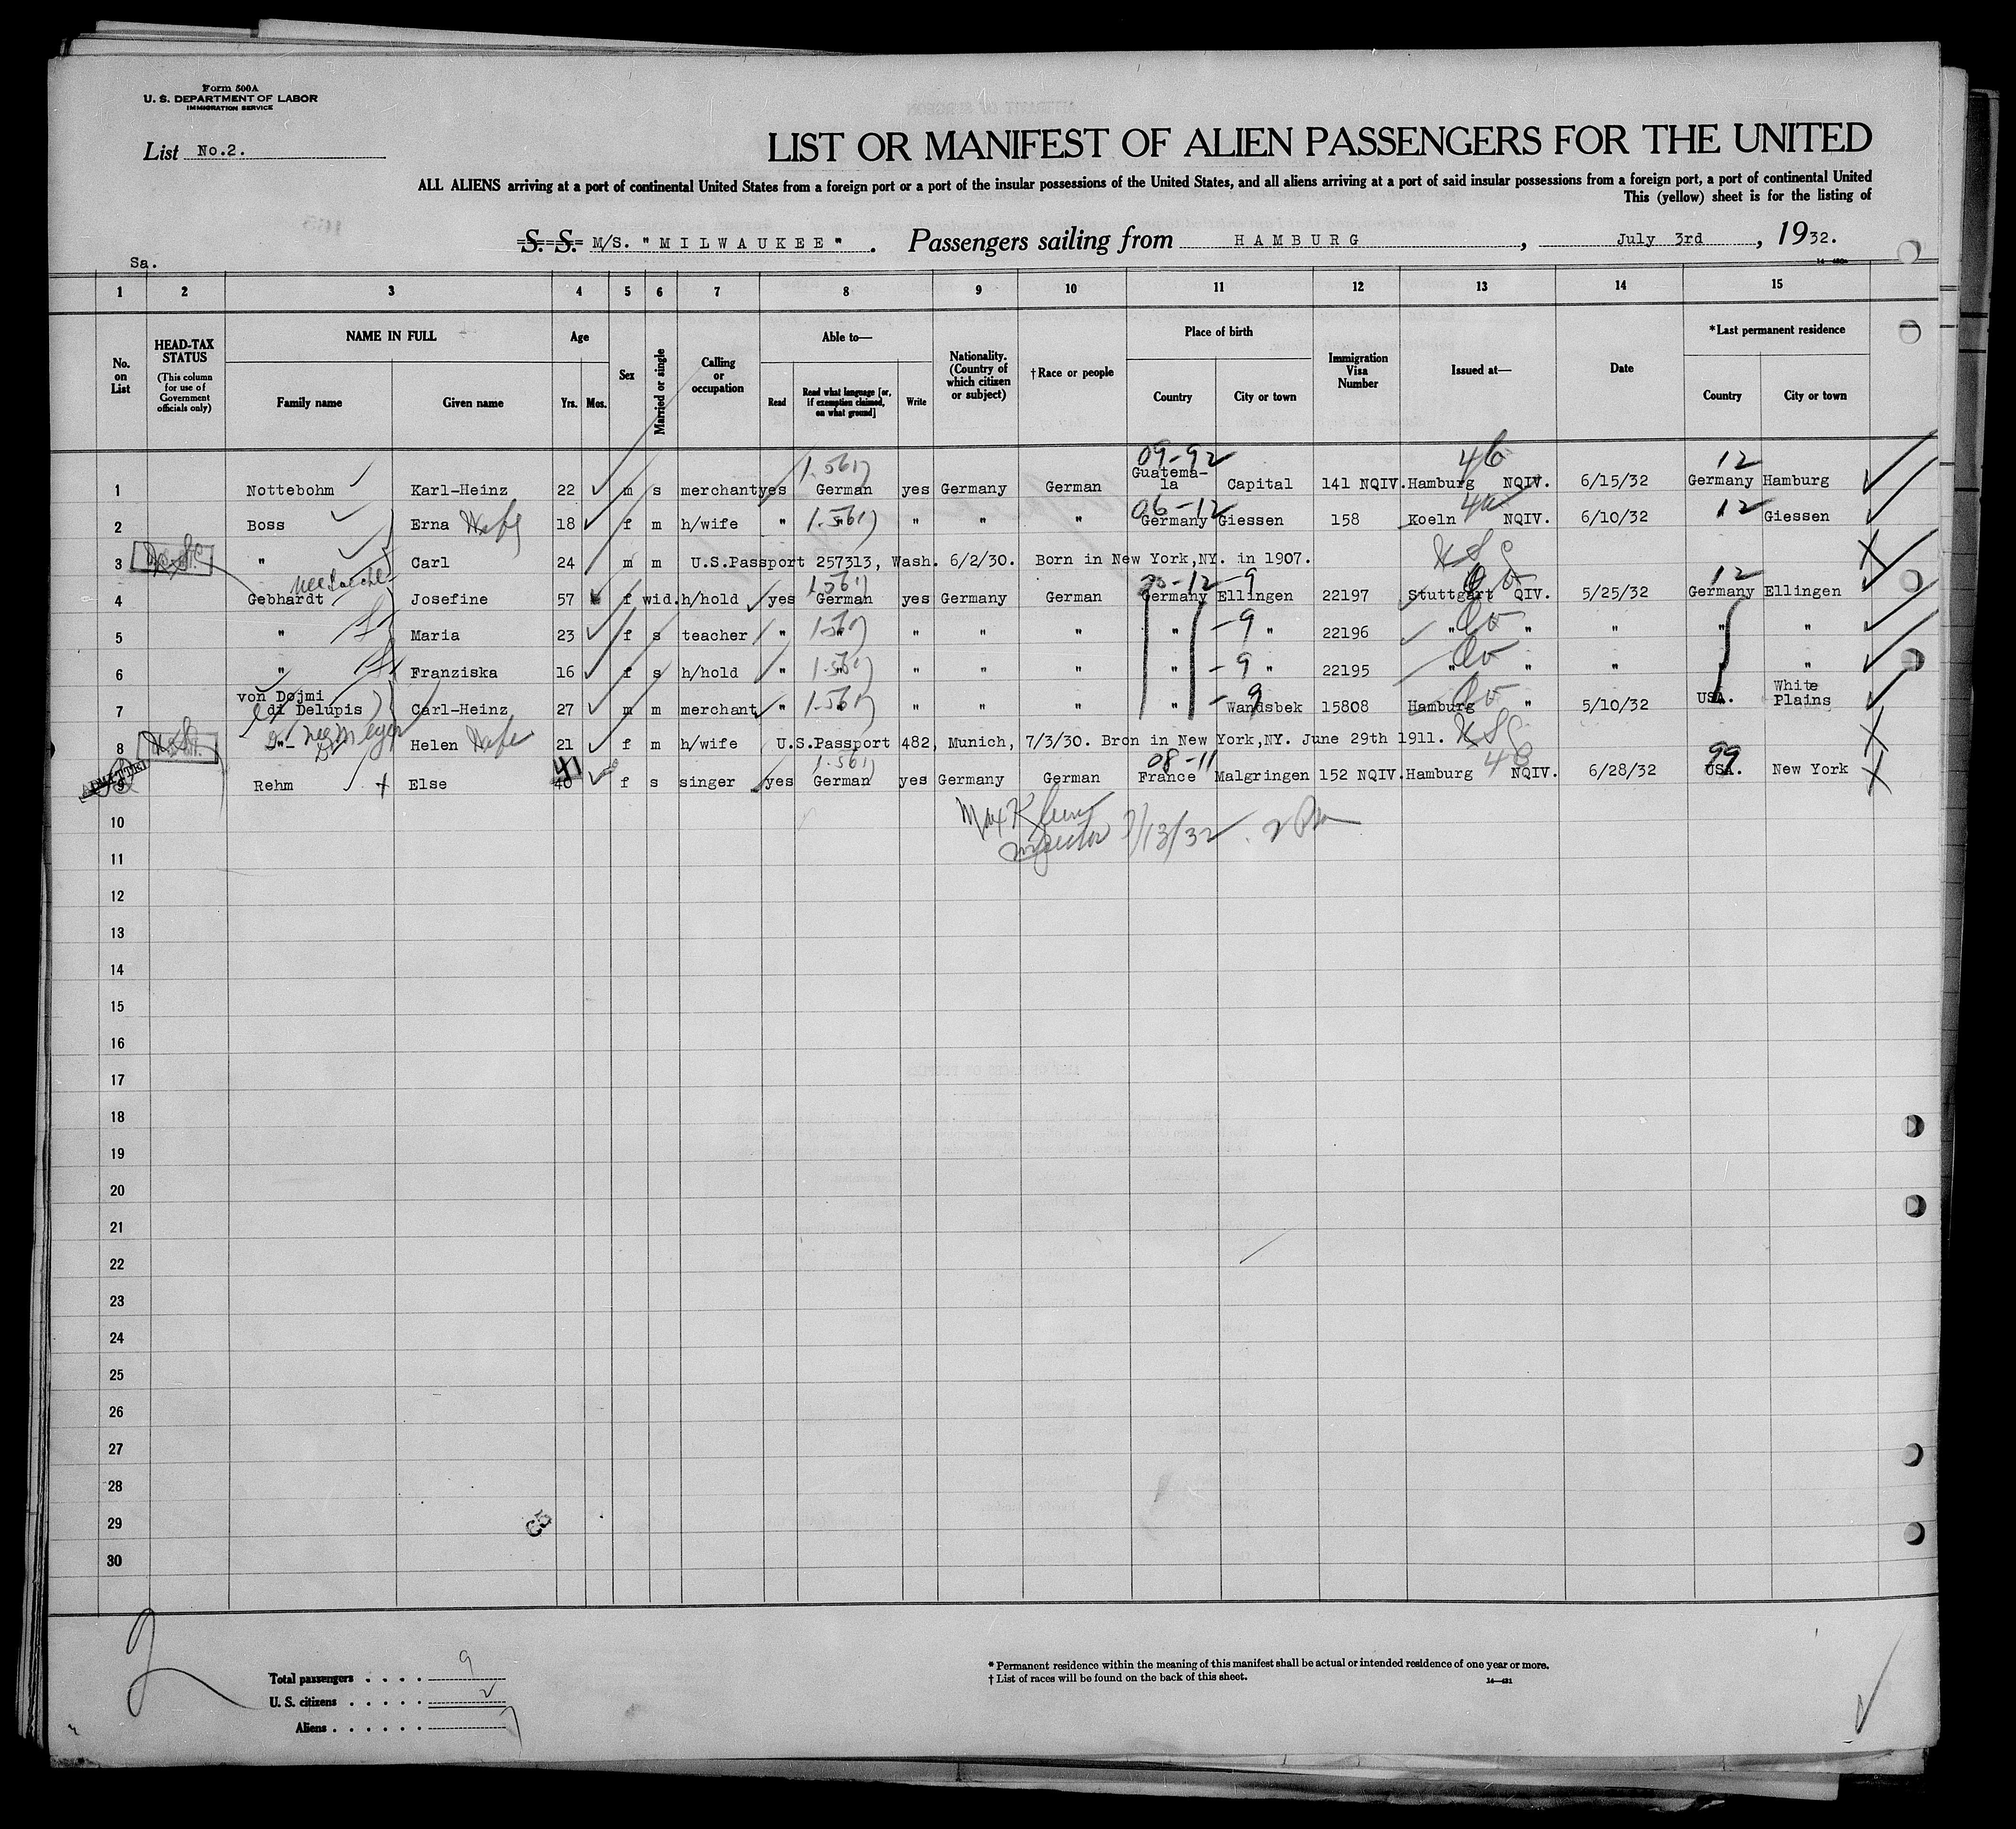 Form 500A
U. S. DEPARTMENT OF LABOR
IMMIGRATION SERVICE
List No.2.
LIST OR MANIFEST OF ALIEN PASSENGERS FOR THE UNITED
ALL ALIENS arriving at a port of continental United States from a foreign port or a port of the insular possessions of the United States, and all aliens arriving at a port of said insular possessions from a foreign port, a port of continental United
This (yellow) sheet is for the listing of
S. S. M/S. "MILWAUKEE". Passengers sailing from HAMBURG, July 3rd, 1932.
Sa.
1 2 3 4 5 6 7 8 9 10 11 12 13 14 15
No. on List
HEAD-TAX STATUS (This column for use of Government officials only)
NAME IN FULL Family name Given name
Age Yrs. Mos.
Sex
Married or single
Calling or occupation
Able to— Read Read what language [or, if exemption claimed, on what ground] Write
Nationality. (Country of which citizen or subject)
†Race or people
Place of birth Country City or town
Immigration Visa Number
Issued at—
Date
*Last permanent residence Country City or town
09-92 46 12
1 Nottebohm Karl-Heinz 22 m s merchant yes German yes Germany German Guatema-la Capital 141 NQIV. Hamburg NQIV. 6/15/32 Germany Hamburg
06-12 12
2 Boss Erna 18 f m h/wife " " " " " Germany Giessen 158 Koeln NQIV. 6/10/32 " Giessen
3 " Carl 24 m m U.S.Passport 257313, Wash. 6/2/30. Born in New York,NY. in 1907.
12
4 Gebhardt Josefine 57 f wid. h/hold yes German yes Germany German Germany Ellingen 22197 Stuttgart QIV. 5/25/32 Germany Ellingen
5 " Maria 23 f s teacher " " " " " " -9 " 22196 " " " " "
6 " Franziska 16 f s h/hold " " " " " " -9 " 22195 " " " " "
7 von Dojmi di Delupis Carl-Heinz 27 m m merchant " " " " " " -9 Wandsbek 15808 Hamburg " 5/10/32 USA. White Plains
nee Meyer
8 -"- Helen 21 f m h/wife U.S.Passport 482, Munich, 7/3/30. Bron in New York,NY. June 29th 1911.
41 08-11 48 99
9 Rehm Else 40 f s singer yes German yes Germany German France Malgringen 152 NQIV. Hamburg NQIV. 6/28/32 USA. New York
10
Inspector 7/13/32
11
12
13
14
15
16
17
18
19
20
21
22
23
24
25
26
27
28
29
30
Total passengers . . . . 9
U. S. citizens . . . . . 2
Aliens . . . . . . 7
* Permanent residence within the meaning of this manifest shall be actual or intended residence of one year or more.
† List of races will be found on the back of this sheet.